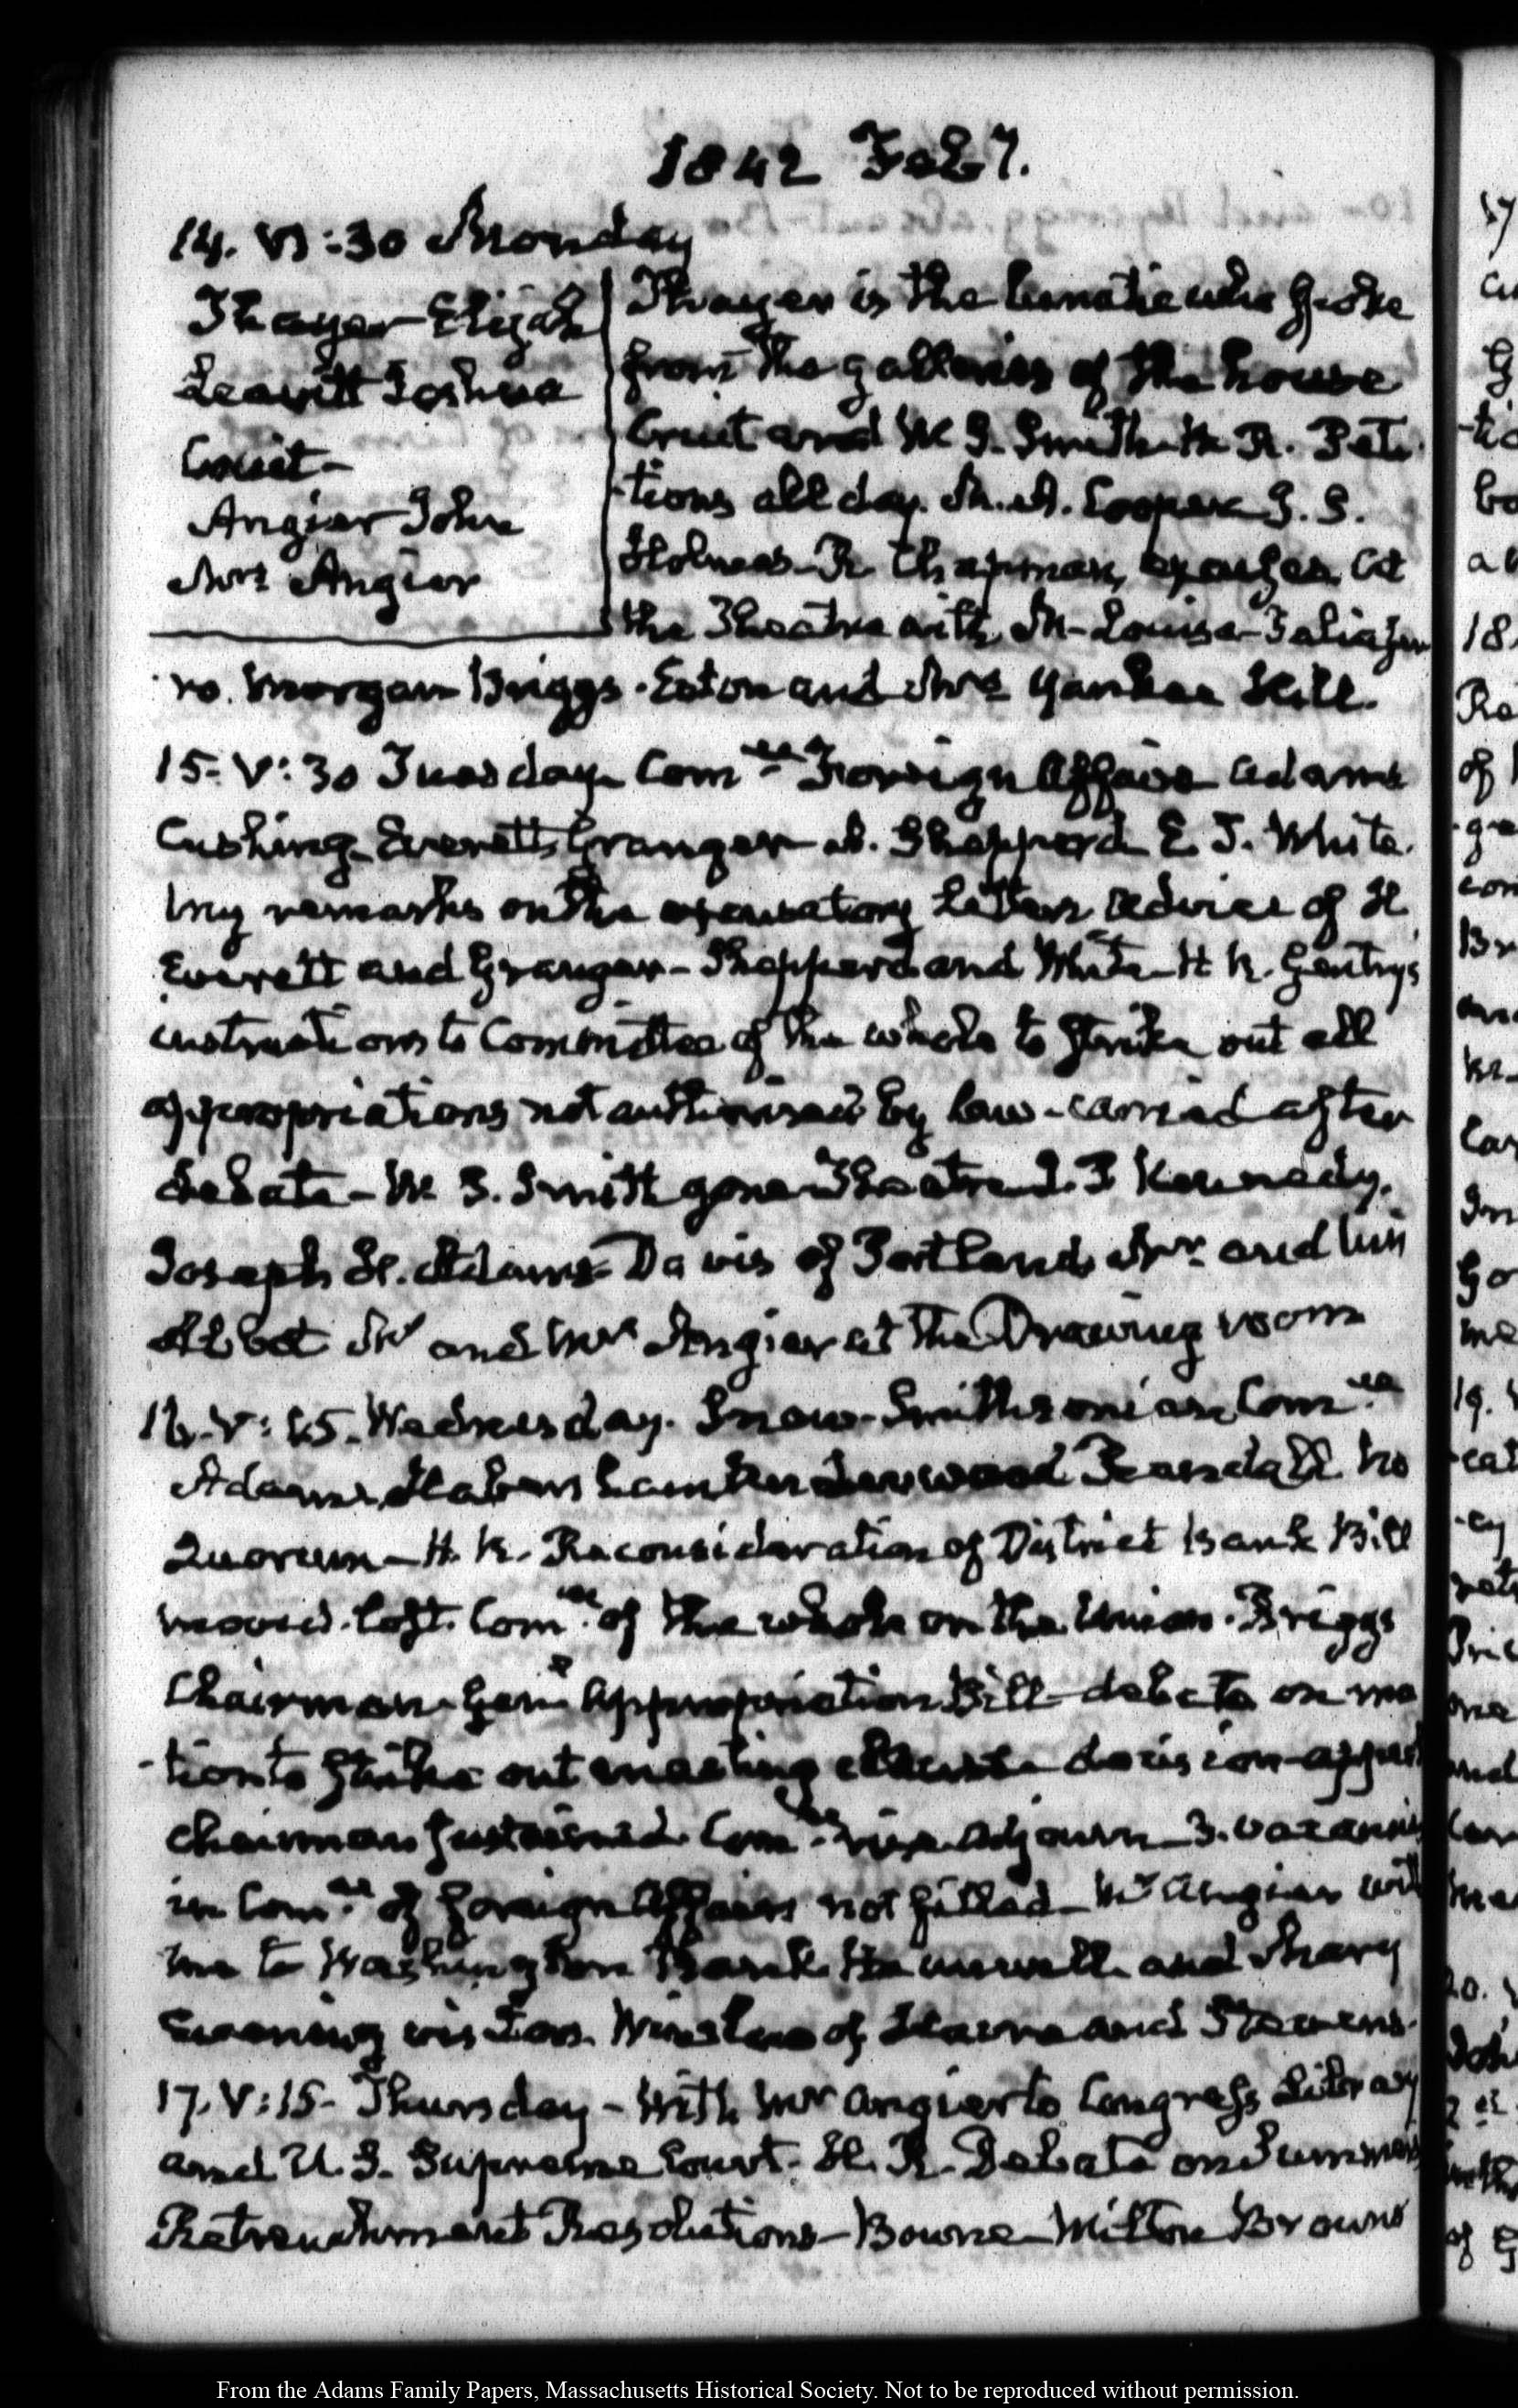 1842 Feby.
14. VI:30 Monday
Thayer Elijah
Leavitt Joshua
Cruit
Angier John
Mrs Angier
Thayer is the lunatic who spoke
from the galleries of the house
Cruit and W S. Smith H. R. Peti
-tions all day. M. A. Cooper
Holmes R Chapman, at
the Theatre with M- Louisa Taliafer
ro. Morgan Briggs. Eaton and Mrs Yankee Hill.
15. V:30 Tuesday Comee Foreign Affairs Adams
Cushing Everett Granger A. Shepperd E. J. White.
my remarks on the letter advice of H
Everett and Granger- Shepperd and White- H R. Gentry's
instructions to Committee of the whole to strike out all
appropriations not authorised by law- carried after
debate- W. S. Smith gone Theatre J. P Kennedy.
Joseph H. Adams Davis of Portland Mr. and Mrs
Abbot Mr and Mrs Angier at the Drawing room
16. V:45. Wednesday. Snow- Smithsonian Comee
Adams, Habersham Underwood Randall no
Quorum- H. R. Reconsideration of District Bank Bill
moved. lost. Comee of the whole on the Union. Briggs
Chairman Genl Appropriation Bill- debate on mo
-tion to strike out decision appeal
chairman sustained. Comee rise Adjourn 3. vacancies
in Comee of foreign Affairs not filled- Mr Angier with
me to Washington Bank He unwell and Mary
Evening visitors Winslow of and Stevens.
17. V:15- Thursday- With Mr Angier to Congress Library
and U. S. Supreme Court. H. R. Debate on Summers
Retrenchment Resolutions- Bowne Milton Brown
From the Adams Family Papers, Massachusetts Historical Society. Not to be reproduced without permission.